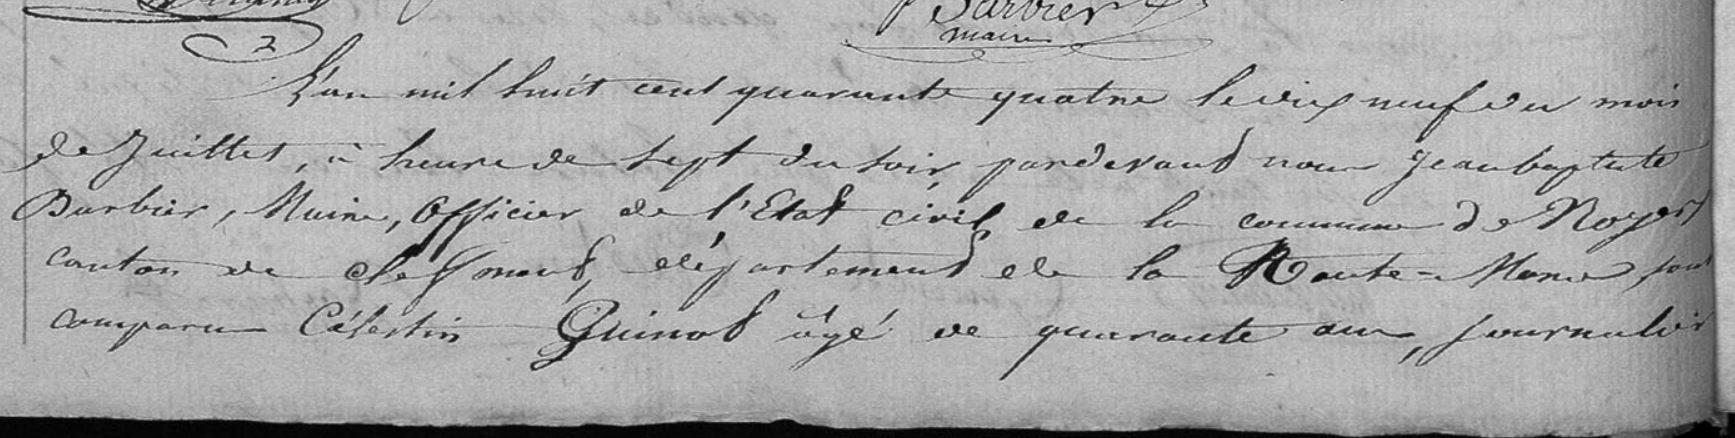 Barbier
maire
2
L'an mil huit cent quarante quatre le dix neuf du mois
de Juillet, à heure de sept du soir, pardevant nous Jean baptiste
Barbier, Maire, Officier de l'Etat civil de la commune de Noyers
canton de Clefmont, département de la Haute-Marne, sont
comparu Célestin Guinot âgé de quarante ans, journalier